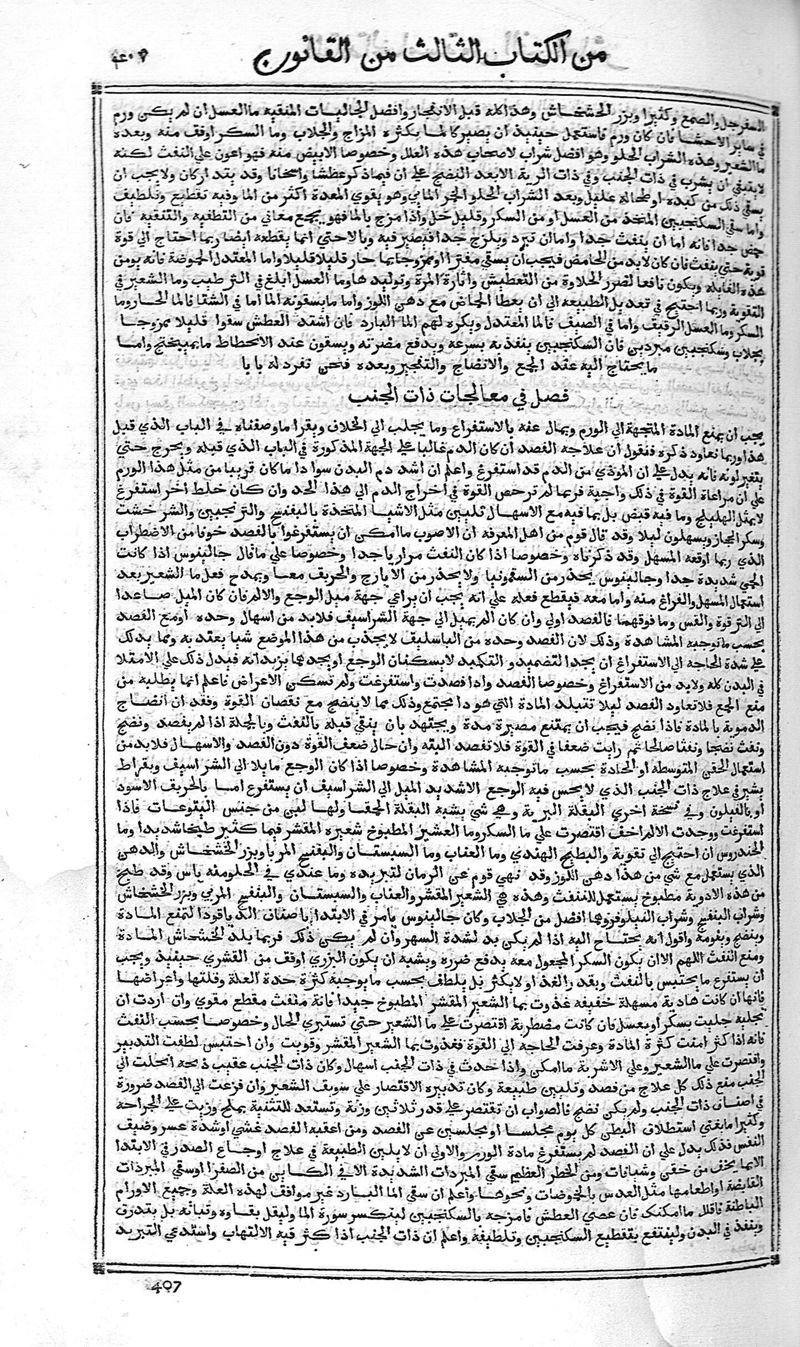 من الكتاب الثالث من القانون
٤٠٧
السفرجل والصمغ وكثيرا وبزر الخشخاش وهذا كله قبل الانفجار وافضل الجاليات المنقيه ما العسل ان لم يكن ورم
في ساير الاحشا فان كان ورم فاستعمل حينيذ ان يصير كالما بكثره المزاج والجلاب وما السكر اوفق منه وبعده
ما الشعير وهذه الشراب الحلو وهو افضل شراب لاصحاب هذه العلل وخصوصا الابيض منه فهو اعون على النفث لكنه
لا ينبغي ان يشرب في ذات الجنب وفي ذات الرية الا بعد النضج على ان فيما ذكر عطشا واسخانا وقد يتدارك ان ولا يجب ان
يسقي ذلك من كبده او طحاله عليل وبعد الشراب الحلو الخمر المايي وهو يقوي المعدة اكثر من الما وفيه تقطيع وتلطيف
واما سقي السكنجبين المتخذ من العسل او من السكر وقليل خل واذا مزج بالما فهو يجمع معاني من التطفيه والتنقيه فان
حمض جدا فانه اما ان ينفث جدا واما ان تبرد ويلزج جدا فيصير فيه وبالا حتى انما يقطعه ايضا ربما احتاج الى قوة
قوية حتى ينفث فان كان لا بد من الحامض فيجب ان يسقي مفترا او ممزوجا بما حار قليلا قليلا واما المعتدل الحموضة فانه يومن
هذه الغايله ويكون نافعا لضرر الحلاوة من التعطيش واثارة المرة وتوليدها وما العسل ابلغ في الترطيب وما الشعير في
التقوية وربما احتيج في تعديل الطبيعه الى ان يعطا الحماض مع دهن اللوز واما ما يسقونه الما اما في الشتا فالما الحار وما
السكر وما العسل الرقيق واما في الصيف فالما المعتدل ويكره لهم الما البارد فان اشتد العطش سقوا قليلا ممزوجا
بجلاب وسكنجبين مبردين فان السكنجبين ينفذ به بسرعه ويدفع مضرته ويسقون عند الانحطاط ما يميبختج واما
ما يحتاج اليه عند الجمع والانضاج والتفجير وبعده فنحن تفرد له بابا
فصل في معالجات ذات الجنب
يجب ان يمنع المادة المتجهة الى الورم ويمال عنه بالاستفراغ وما يجلب الى الخلاف ويقرا ما وصفناه في الباب الذي قبل
هذا وربما نعاود ذكره فنقول ان علاجه الفصد ان كان الدم غالبا على الجهة المذكورة في الباب الذي قبله ويخرج حتي
يتغير لونه فانه يدل على ان الموذي من الدم قد استفرغ واعلم ان اشد دم البدن سوادا ما كان قريبا من مثل هذا الورم
على ان مراعاة القوة في ذلك واجبة فربما لم ترخص القوة في اخراج الدم الى هذا الحد وان كان خلط اخر استفرغ
لا بمثل الهليلج وما فيه قبض بل بما فيه مع الاسهال تليين مثل الاشيا المتخذة بالبنفسج والترنجبين والشرخشت
وسكر الحجاز ويسهلون ليلا وقد قال قوم من اهل المعرفه ان الاصوب ما امكن ان يستفرغوا بالفصد خوفا من الاضطراب
الذي ربما اوقعه المسهل وقد ذكرناه وخصوصا اذا كان النفث مراريا جدا وخصوصا على ما قال جالينوس اذا كانت
الحمي شديدة جدا وجالينوس يحذر من السقمونيا ولا يحذر من الايارج والخربق معا ويمدح فعل ما الشعير بعد
استعمال المسهل والفراغ منه واما معه فيقطع فعله على انه يجب ان يراعي جهة ميل الوجع والالم فان كان الميل صاعدا
الى الترقوة والقس وما فوقهما فالفصد اولي وان كان الالم يميل الى جهة الشراسيف فلا بد من اسهال وحده او مع الفصد
بحسب ما توجبه المشاهدة وذلك لان الفصد وحده من الباسليق لا يجذب من هذا الموضع شيا يعتد به ومما يدلك
على شدة الحاجه الى الاستفراغ ان يجدا لتضميد والتكميد لا يسكنان الوجع او يجدهما يزيدانه فيدل ذلك على الامتلا
في البدن كله ولا بد من الاستفراغ وخصوصا الفصد واذا فصدت واستفرغت ولم تسكن الاعراض فاعلم انما يطلبه من
منع الجمع فلا تعاود الفصد ليلا تتبلد المادة التي هو ذا يجتمع وذلك مما لا ينضج مع نقصان القوة وفقد ان انضاج
الدموية بالمادة فاذا نضج فيجب ان يمتنع مصيره مدة ويجتهد بان ينقي قبله بالنفث وبالجملة اذا لم يفصد ونضج
ونفث نضجا ونفثا صالحا ثم رايت ضعفا في القوة فلا تفصد البته وان حال ضعف القوة دون الفصد والاسهال فلا بد من
استعمال الحقن المتوسطة او الحادة بحسب ما توجبه المشاهدة وخصوصا اذا كان الوجع مايلا الى الشراسيف وبقراط
يشير في علاج ذات الجنب الذي لا يحس فيه الوجع الا شديد الميل الى الشراسيف ان يستفرغ اما بالخربق الاسود
او بالفيلون وفي نسخة اخري البقلة البرية وهي شي يشبه البقلة الحمقا ولها لبن من جنس اليتوعات فاذا
استفرغت ووجدت الالم اخف اقتصرت على ما السكر وما العشير المطبوخ شعيره المقشر فيما كثير طبخا شديدا وما
الخندروس ان احتيج الى تقوية والبطيخ الهندي وما العناب وما السبستان والبنفسج المربا وبزر الخشخاش والدهن
الذي يستعمل مع شي من هذا دهن اللوز وقد نهي قوم عن الرمان لتبريده وما عندي في الحلو منه باس وقد طبخ
من هذه الادوية مطبوخ يستعمل للنفث وهذه هي الشعير المقشر والعناب والسبستان والبنفسج المربي وبزر الخشخاش
وشراب البنفسج وشراب النيلوفر وهما افضل من الجلاب وكان جالينوس يامر في الابتدا باصناف الدياقودا لتمنع المادة
وينضج وينومه واقول انه يحتاج اليه اذا لم يكن بد لشدة السهر وان لم يكن ذلك فربما بلد الخشخاش المادة
ومنع النفث اللهم الا ان يكون السكر المجعول معه يدفع ضرره ويشبه ان يكون البزري اوفق من القشري حينيذ ويجب
ان يستفرغ ما يحتبس بالنفث وبقدر الغذا ولا يكثر بل يلطف بحسب ما يوجبه كثرة حدة العلة وقلتها واعراضها
فانها ان كانت هادية مسهلة خفيفه غذوت بما الشعير المقشر المطبوخ جيدا فانه منفث مقطع مقوي وان اردت ان
تحليه حليت بسكر او بعسل فان كانت مضطربة اقتصرت على ما الشعير حتي تستبري الحال وخصوصا بحسب النفث
فانه اذا كثر امنت كثرة المادة وعرفت الحاجه الى القوة فغذوت بما الشعير المقشر وقويت وان احتبس لطفت التدبير
واقتصرت على ما الشعير وعلى الاشربة ما امكن واذا حدث في ذات الجنب اسهال وكان ذات الجنب عقيب ذبحة انحلت الى
الجنب منع ذلك كل علاج من فصد وتليين طبيعة وكان تدبيره الاقتصار على سويق الشعير وان فزعت الى الفصد ضرورة
في اصناف ذات الجنب ولم يكن نضج فالصواب ان تقتصر على قدر ثلاثين وزنة وتستعد للتثنية بملح وزيت على الجراحه
وكثيرا ما يغني استطلاق البطن كل يوم مجلسا او مجلسين عن الفصد ومن اعقبه الفصد غشي او شدة عسر وضيف
النفس فذلك يدل على ان الفصد لم يستفرغ مادة الورم والاولي ان لا يلين الطبيعة في علاج اوجاع الصدر في الابتدا
الا بما يخف من حقن وشيافات ومن الخطر العظيم سقي المبردات الشديدة الا في الكاين من الصفرا وسقي المبردات
القابضة او اطعامها مثل العدس بالحموضات ونحوها واعلم ان سقي الما البارد غير موافق لهذه العلة وجميع الاورام
الباطنة فاقلل ما امكنك فان عصي العطش فامزجه بالسكنجبين لينكسر سورة الما وليقل بقاوه وثباته بل يتدرق
وينفذ في البدن ولينتفع بتقطيع السكنجبين وتلطيفه واعلم ان ذات الجنب اذا كثر فيه الالتهاب واستدعي التبريد
407